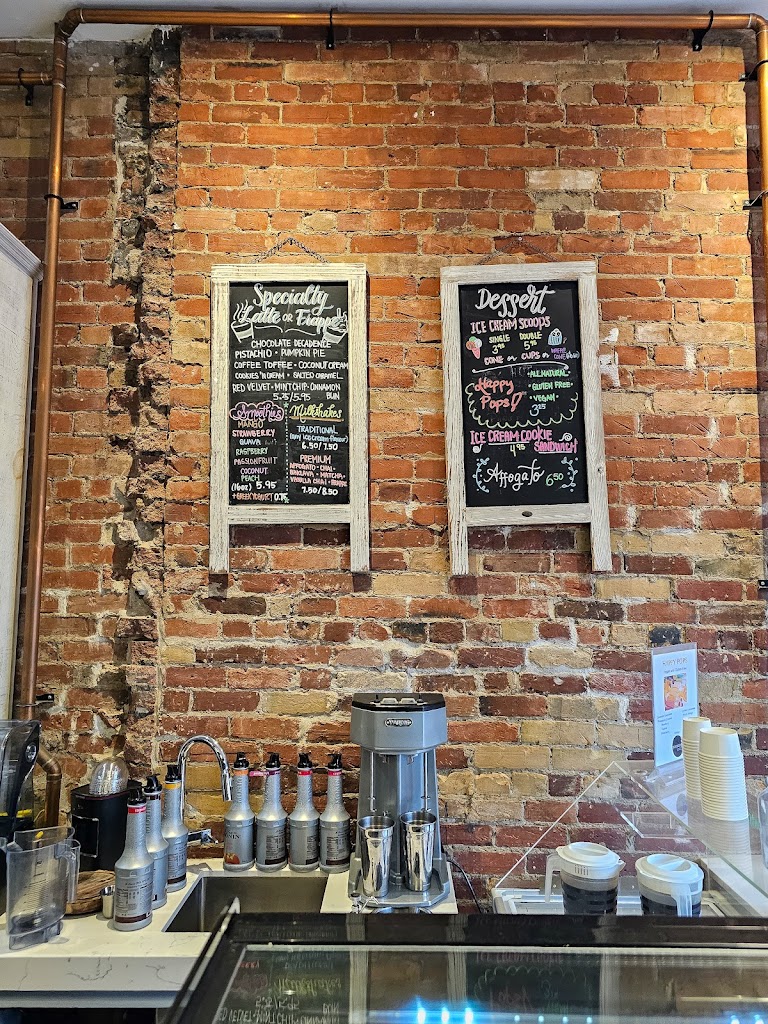 Specialty
Latte OR Frappe
CHOCOLATE DECADENCE
PISTACHIO • PUMPKIN PIE
COFFEE TOFFEE • COCONUT CREAM
COOKIES 'N CREAM • SALTED CARAMEL
RED VELVET • MINT CHIP • CINNAMON
5.75/5.95 BUN
Smoothies
MANGO
STRAWBERRY
GUAVA
RASPBERRY
PASSIONFRUIT
COCONUT
PEACH
(16oz) 5.95
+GREEK YOGURT 0.75
Milkshakes
TRADITIONAL
(any ice cream flavour)
6.50/7.50
PREMIUM
AFFOGATO • CHAI •
BAKLAVA • MATCHA •
VANILLA CHAI •
7.50/8.50
Dessert
ICE CREAM SCOOPS
SINGLE DOUBLE
3.95 5.95
CONE or CUPS or WAFFLE CONE
Happy
Pops
• ALL NATURAL •
• GLUTEN FREE •
• VEGAN •
3.25
ICE CREAM COOKIE
4.95 SANDWICH
Affogato 6.50
HAPPY POPS